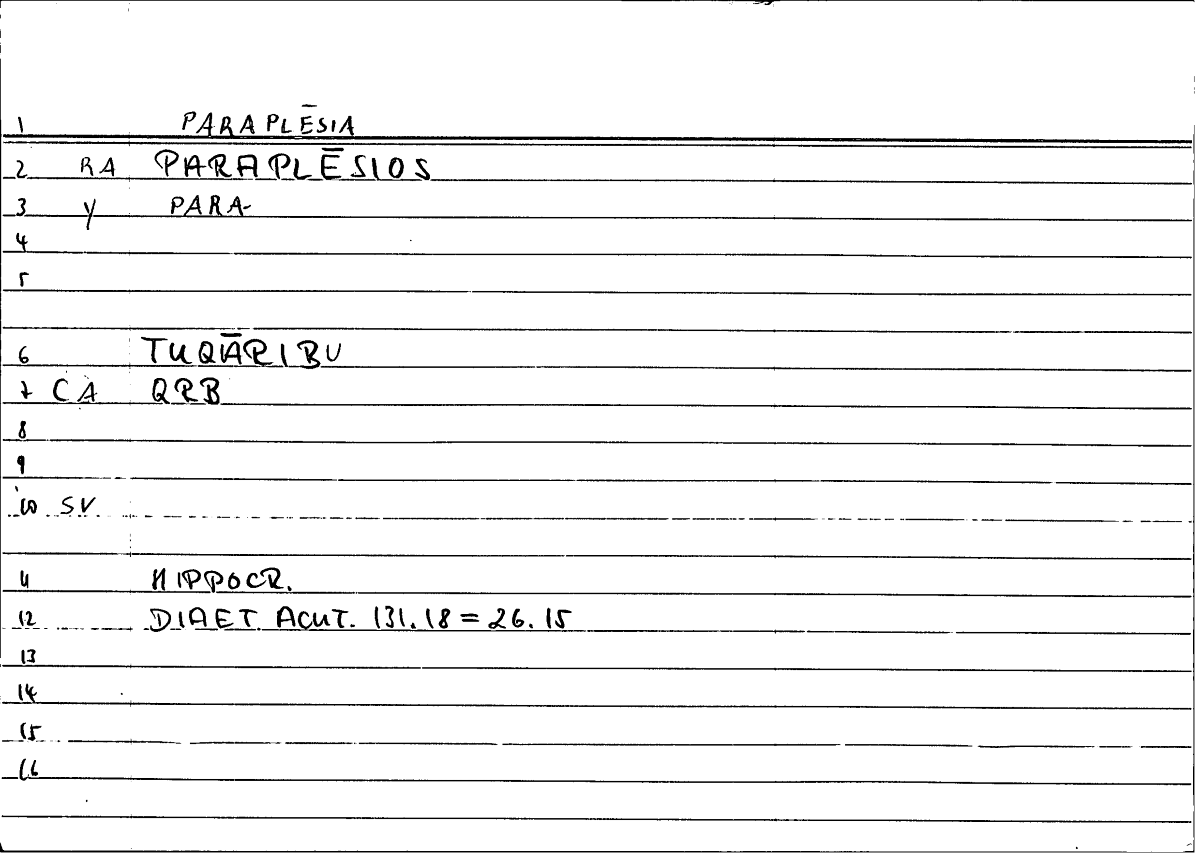 1 PARAPLĒSIA
2 RA PARAPLĒSIOS
3 y PARA-
4
5
6 TUQĀRIBU
7 CA QRB
8
9
10 SV
11 HIPPOCR.
12 DIAET ACUT. 131.18 = 26.15
13
14
15
16